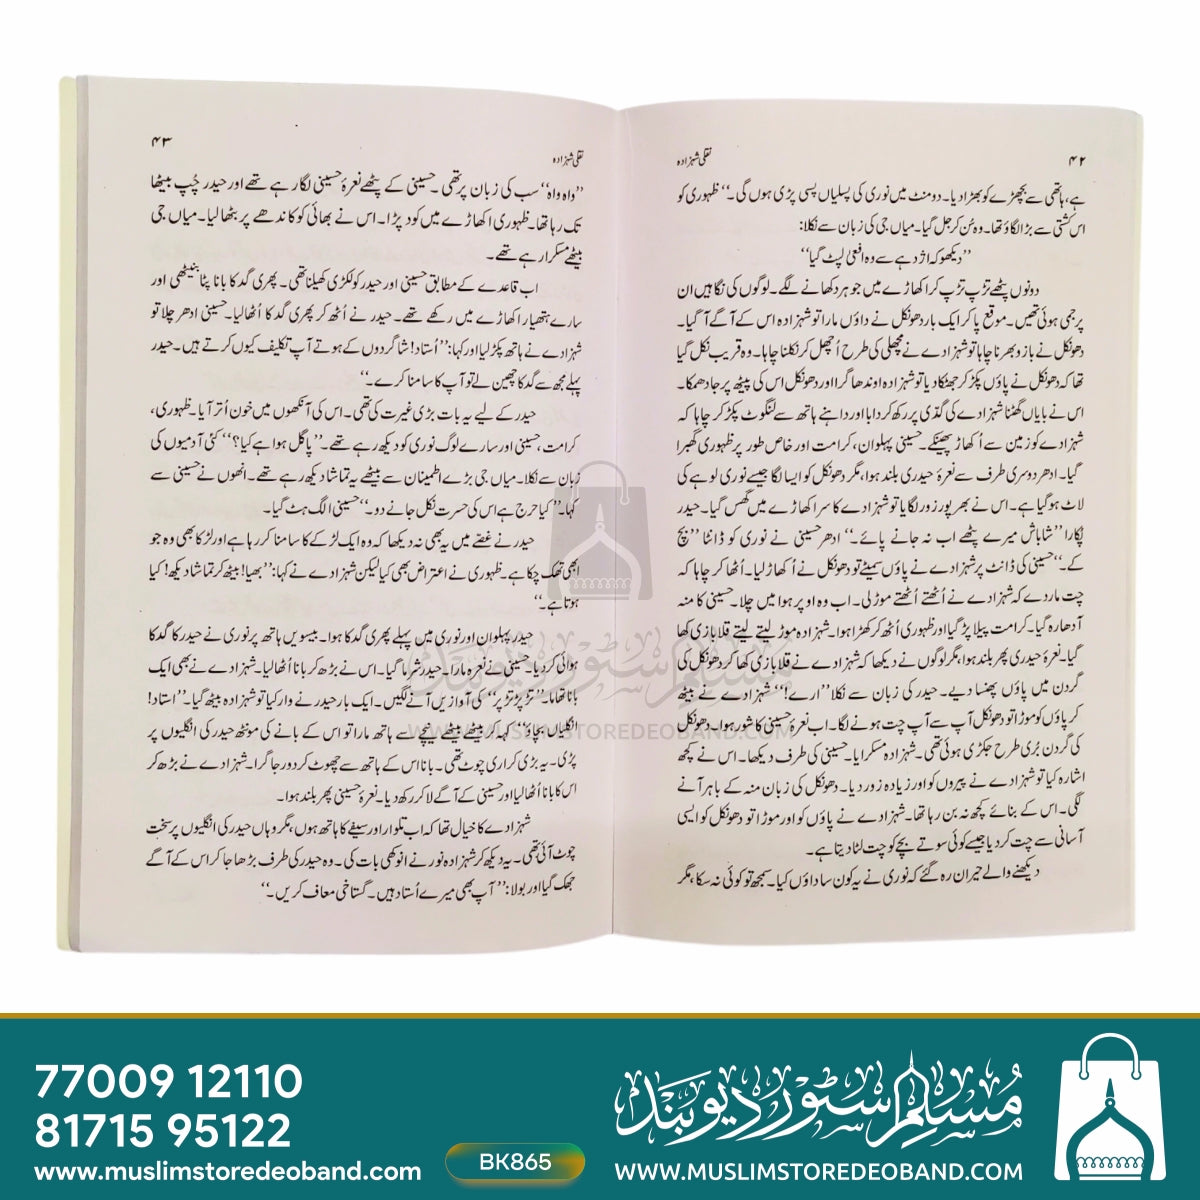 ۴۲
نقلی شہزادہ
ہے، ہاتھی سے بچھڑے کو بھڑا دیا۔ دو منٹ میں نوری کی پسلیاں پسی پڑی ہوں گی۔“ ظہوری کو
اس کشتی سے بڑا لگاؤ تھا۔ وہ سُن کر جل گیا۔ میاں جی کی زبان سے نکلا:
”دیکھو کہ اژدہے سے وہ افعیٰ لپٹ گیا“
دونوں پٹھے تڑپ تڑپ کر اکھاڑے میں جوہر دکھانے لگے۔ لوگوں کی نگاہیں ان
پر جمی ہوئی تھیں۔ موقع پا کر ایک بار دھونکل نے داؤں مارا تو شہزادہ اس کے آگے آ گیا۔
دھونکل نے بازو بھرنا چاہا تو شہزادے نے مچھلی کی طرح اُچھل کر نکلنا چاہا۔ وہ قریب نکل گیا
تھا کہ دھونکل نے پاؤں پکڑ کر جھٹکا دیا تو شہزادہ اوندھا گرا اور دھونکل اس کی پیٹھ پر جا دھمکا۔
اس نے بایاں گھٹنا شہزادے کی گڈی پر رکھ کر دبایا اور داہنے ہاتھ سے لنگوٹ پکڑ کر چاہا کہ
شہزادے کو زمین سے اُکھاڑ پھینکے۔ حسینی پہلوان، کرامت اور خاص طور پر ظہوری گھبرا
گیا۔ ادھر دوسری طرف سے نعرۂ حیدری بلند ہوا، مگر دھونکل کو ایسا لگا جیسے نوری لوہے کی
لاٹ ہو گیا ہے۔ اس نے بھرپور زور لگایا تو شہزادے کا سر اکھاڑے میں گھس گیا۔ حیدر
پکارا ”شاباش میرے پٹھے اب نہ جانے پائے۔“ ادھر حسینی نے نوری کو ڈانٹا ”بچ
کے۔“ حسینی کی ڈانٹ پر شہزادے نے پاؤں سمیٹے تو دھونکل نے اُکھاڑ لیا۔ اُٹھا کر چاہا کہ
چت مار دے کہ شہزادے نے اُٹھتے اُٹھتے موڑ لی۔ اب وہ اوپر ہوا میں چلا۔ حسینی کا منہ
آدھا رہ گیا۔ کرامت پیلا پڑ گیا اور ظہوری اُٹھ کر کھڑا ہوا۔ شہزادہ موڑ لیتے لیتے قلابازی کھا
گیا۔ نعرۂ حیدری پھر بلند ہوا، مگر لوگوں نے دیکھا کہ شہزادے نے قلابازی کھا کر دھونکل کی
گردن میں پاؤں پھنسا دیے۔ حیدر کی زبان سے نکلا ”ارے!“ شہزادے نے بیٹھ
کر پاؤں کو موڑا تو دھونکل آپ سے آپ چت ہونے لگا۔ اب نعرۂ حسینی کا شور ہوا۔ دھونکل
کی گردن بُری طرح جکڑی ہوئی تھی۔ شہزادہ مسکرایا۔ حسینی کی طرف دیکھا۔ اس نے کچھ
اشارہ کیا تو شہزادے نے پیروں کو اور زیادہ زور دیا۔ دھونکل کی زبان منہ کے باہر آنے
لگی۔ اس کے بنائے کچھ نہ بن رہا تھا۔ شہزادے نے پاؤں کو اور موڑا تو دھونکل کو ایسی
آسانی سے چت کر دیا جیسے کوئی سوتے بچے کو چت لٹا دیتا ہے۔
دیکھنے والے حیران رہ گئے کہ نوری نے یہ کون سا داؤں کیا۔ سمجھ تو کوئی نہ سکا، مگر
نقلی شہزادہ
۴۳
”واہ واہ“ سب کی زبان پر تھی۔ حسینی کے پٹھے نعرۂ حسینی لگا رہے تھے اور حیدر چُپ بیٹھا
تک رہا تھا۔ ظہوری اکھاڑے میں کود پڑا۔ اس نے بھائی کو کاندھے پر بٹھا لیا۔ میاں جی
بیٹھے مسکرا رہے تھے۔
اب قاعدے کے مطابق حسینی اور حیدر کو لکڑی کھیلنا تھی۔ پھری گدکا بانا پٹا بنیٹھی اور
سارے ہتھیار اکھاڑے میں رکھے تھے۔ حیدر نے اُٹھ کر پھری گدکا اُٹھا لیا۔ حسینی ادھر چلا تو
شہزادے نے ہاتھ پکڑ لیا اور کہا: ”اُستاد! شاگردوں کے ہوتے آپ تکلیف کیوں کرتے ہیں۔ حیدر
پہلے مجھ سے گدکا چھین لے تو آپ کا سامنا کرے۔“
حیدر کے لیے یہ بات بڑی غیرت کی تھی۔ اس کی آنکھوں میں خون اُتر آیا۔ ظہوری،
کرامت، حسینی اور سارے لوگ نوری کو دیکھ رہے تھے۔ ”پاگل ہوا ہے کیا؟“ کئی آدمیوں کی
زبان سے نکلا۔ میاں جی بڑے اطمینان سے بیٹھے یہ تماشا دیکھ رہے تھے۔ انھوں نے حسینی سے
کہا۔ ”کیا حرج ہے اس کی حسرت نکل جانے دو۔“ حسینی الگ ہٹ گیا۔
حیدر نے غصّے میں یہ بھی نہ دیکھا کہ وہ ایک لڑکے کا سامنا کر رہا ہے اور لڑکا بھی وہ جو
ابھی تھک چکا ہے۔ ظہوری نے اعتراض بھی کیا لیکن شہزادے نے کہا: ”بھیا! بیٹھ کر تماشا دیکھ! کیا
ہوتا ہے۔“
حیدر پہلوان اور نوری میں پہلے پھری گدکا ہوا۔ بیسویں ہاتھ پر نوری نے حیدر کا گدکا
ہوائی کر دیا۔ حسینی نے نعرہ مارا۔ حیدر شرما گیا۔ اس نے بڑھ کر بانا اُٹھا لیا۔ شہزادے نے بھی ایک
بانا تھاما۔ ”تڑ پڑ تڑ پڑ“ کی آوازیں آنے لگیں۔ ایک بار حیدر نے وار کیا تو شہزادہ بیٹھ گیا۔ ”استاد!
انگلیاں بچاؤ“ کہہ کر بیٹھے بیٹھے نیچے سے ہاتھ مارا تو اس کے بانے کی مونٹھ حیدر کی انگلیوں پر
پڑی۔ یہ بڑی کراری چوٹ تھی۔ بانا اس کے ہاتھ سے چھوٹ کر دور جا گرا۔ شہزادے نے بڑھ کر
اس کا بانا اُٹھا لیا اور حسینی کے آگے لا کر رکھ دیا۔ نعرۂ حسینی پھر بلند ہوا۔
شہزادے کا خیال تھا کہ اب تلوار اور سیفے کا ہاتھ ہوں، مگر وہاں حیدر کی انگلیوں پر سخت
چوٹ آئی تھی۔ یہ دیکھ کر شہزادہ نور نے انوکھی بات کی۔ وہ حیدر کی طرف بڑھا جا کر اس کے آگے
جھک گیا اور بولا: ”آپ بھی میرے اُستاد ہیں۔ گستاخی معاف کریں۔“
مسلم سٹور دیوبند
WWW.MUSLIMSTOREDEOBAND.COM
77009 12110
81715 95122
www.muslimstoredeoband.com
BK865
مسلم سٹور دیوبند
WWW.MUSLIMSTOREDEOBAND.COM